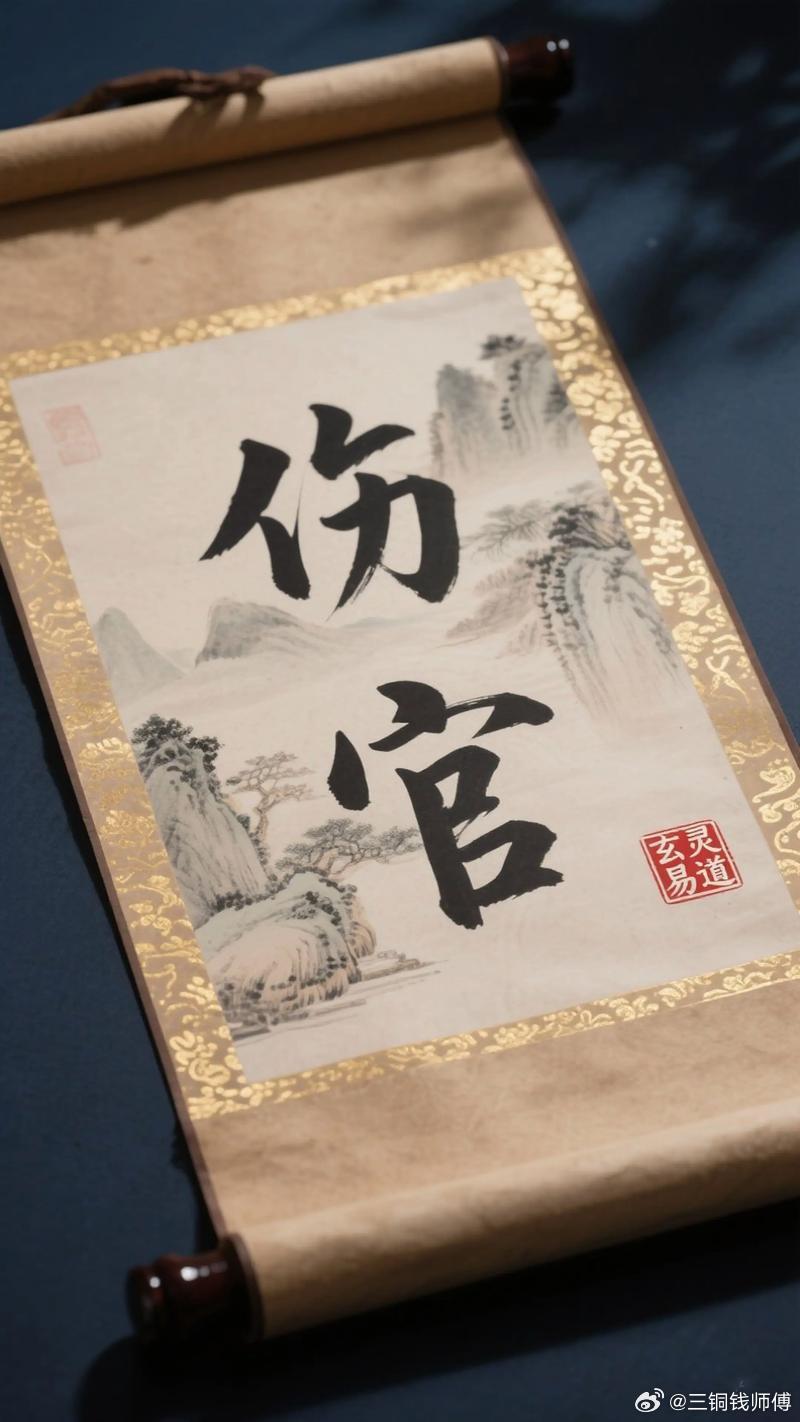 伤
官
灵道
玄易
@三铜钱师傅